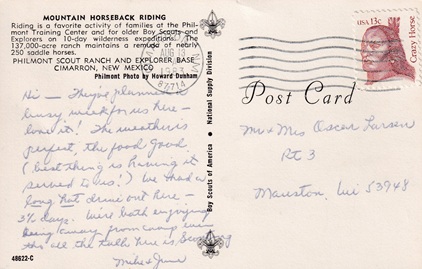 MOUNTAIN HORSEBACK RIDING
Riding is a favorite activity of families at the Phil-
mont Training Center and for older Boy Scouts and
Explorers on 10-day wilderness expeditions. The
137,000-acre ranch maintains a remuda of nearly
250 saddle horses.
PHILMONT SCOUT RANCH AND EXPLORER BASE
CIMARRON, NEW MEXICO
Philmont Photo by Howard Dunham
Hi — They've planned a
busy week for us here —
love it! The weather's
perfect, the food good
(best thing is having it
served to us!) We had a
long hot drive out here —
3½ days. We're both enjoying
being away from camp even
tho all the talk here is Scouting
Mike & June
48622-C
Boy Scouts of America • National Supply Division
AUG 13
1983
87714
USA 13c
Crazy Horse
Post Card
Mr & Mrs Oscar Larsen
Rt 3
Mauston, Wi 53948